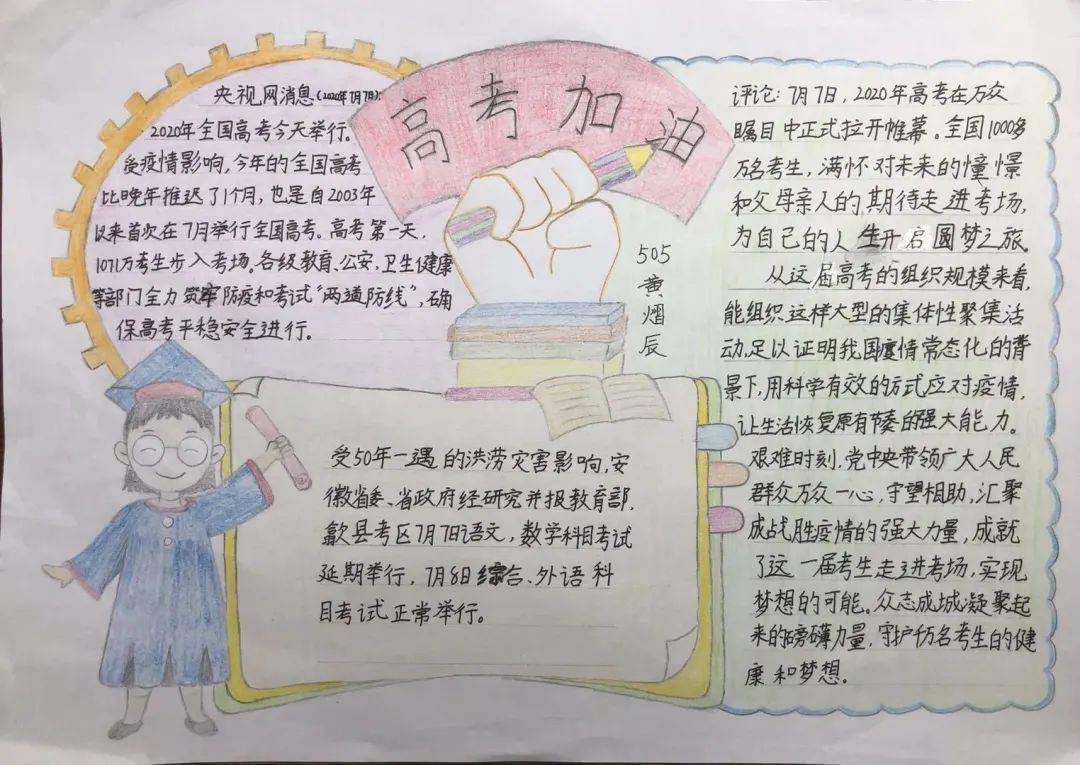 高考加油
央视网消息(2020年7月7日):
2020年全国高考今天举行。
受疫情影响,今年的全国高考
比晚年推迟了1个月,也是自2003年
以来首次在7月举行全国高考。高考第一天,
1071万考生步入考场。各级教育、公安、卫生健康
等部门全力筑牢防疫和考试“两道防线”,确
保高考平稳安全进行。
505
黄熠辰
受50年一遇的洪涝灾害影响,安
徽省委、省政府经研究并报教育部,
歙县考区7月7日语文,数学科目考试
延期举行,7月8日综合、外语科
目考试正常举行。
评论:7月7日,2020年高考在万众
瞩目中正式拉开帷幕。全国1000多
万名考生,满怀对未来的憧憬
和父母亲人的期待走进考场,
为自己的人生开启圆梦之旅。
从这届高考的组织规模来看,
能组织这样大型的集体性聚集活
动,足以证明我国疫情常态化的背
景下,用科学有效的方式应对疫情,
让生活恢复原有节奏的强大能力。
艰难时刻,党中央带领广大人民
群众万众一心,守望相助,汇聚
成战胜疫情的强大力量,成就
了这一届考生走进考场,实现
梦想的可能。众志成城凝聚起
来的磅礴力量,守护千万名考生的健
康和梦想。